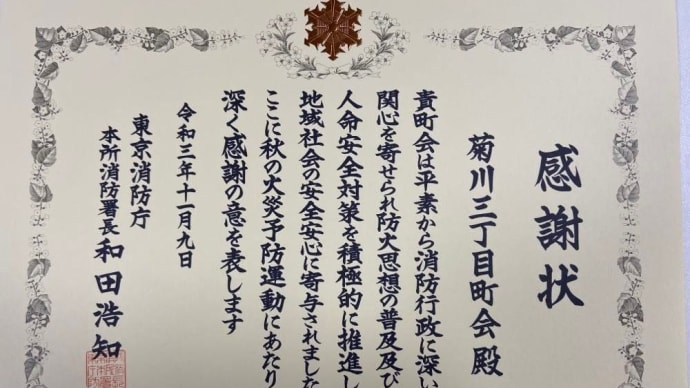 感謝状
菊川三丁目町会殿
貴町会は平素から消防行政に深い
関心を寄せられ防火思想の普及及び
人命安全対策を積極的に推進し
地域社会の安全安心に寄与されました
ここに秋の火災予防運動にあたり
深く感謝の意を表します
令和三年十一月九日
東京消防庁
本所消防署長 和田浩知